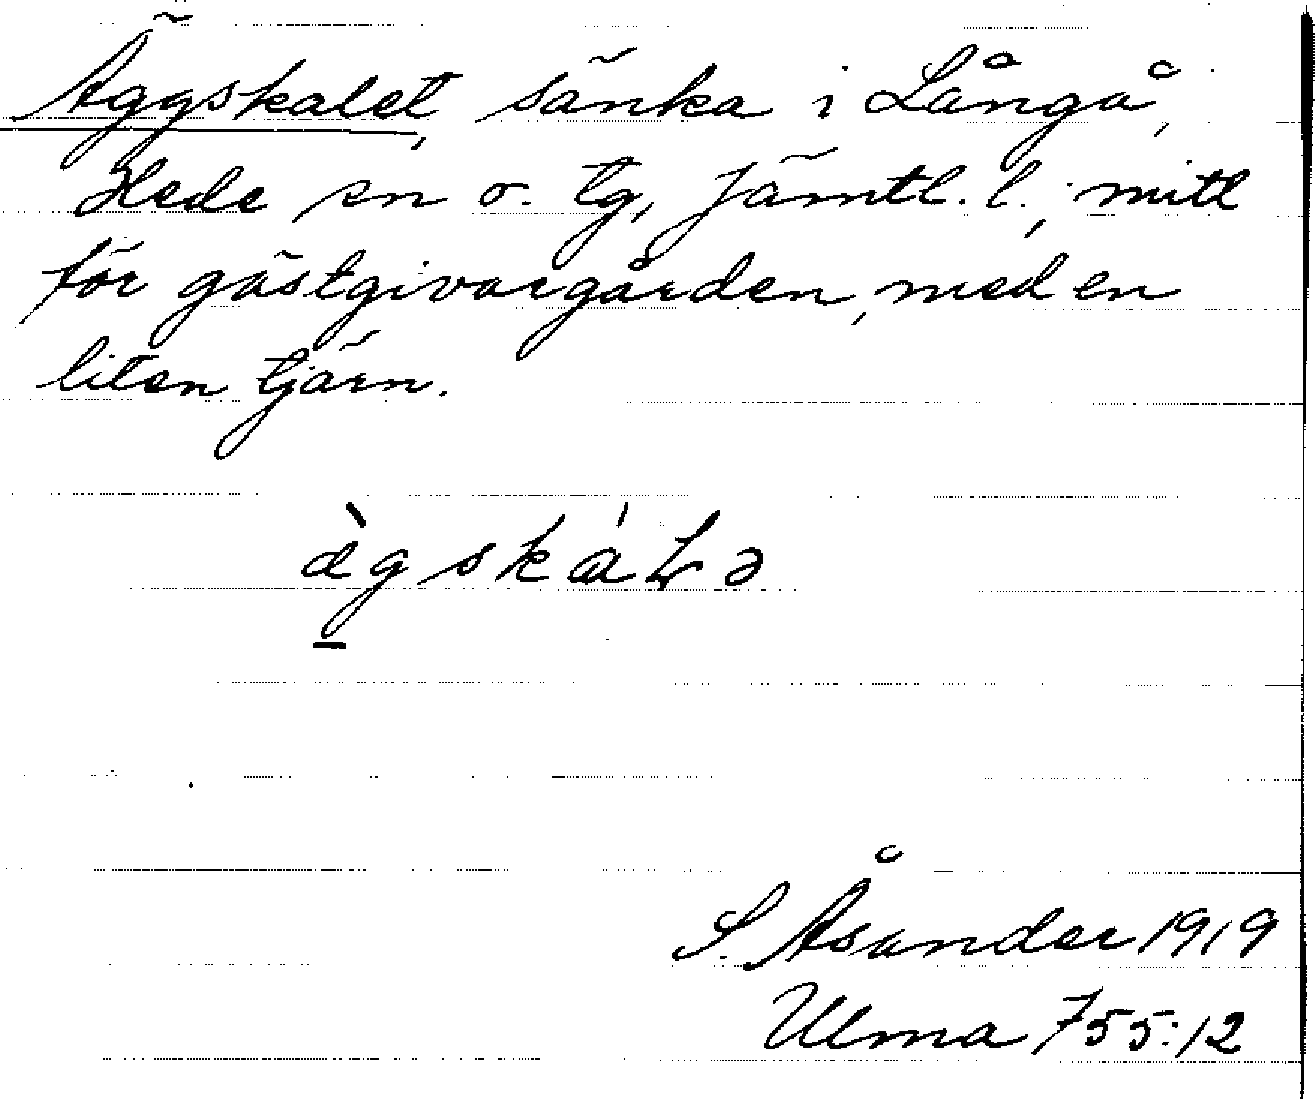 Äggskalet, sänka i Långå,
Hede sn o. tg, Jämtl. l., mitt
för gästgivargården, med en
liten tjärn.
ä̀gskáLə
S. Åsander 1919
Ulma 755:12